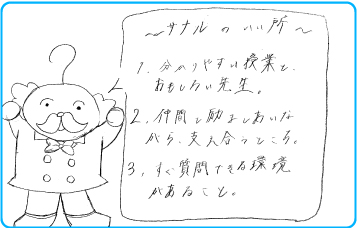 ～サナルのいい所～
1. 分かりやすい授業と、
おもしろい先生。
2. 仲間と励ましあいな
がら、支え合うところ。
3. すぐ質問できる環境
があること。